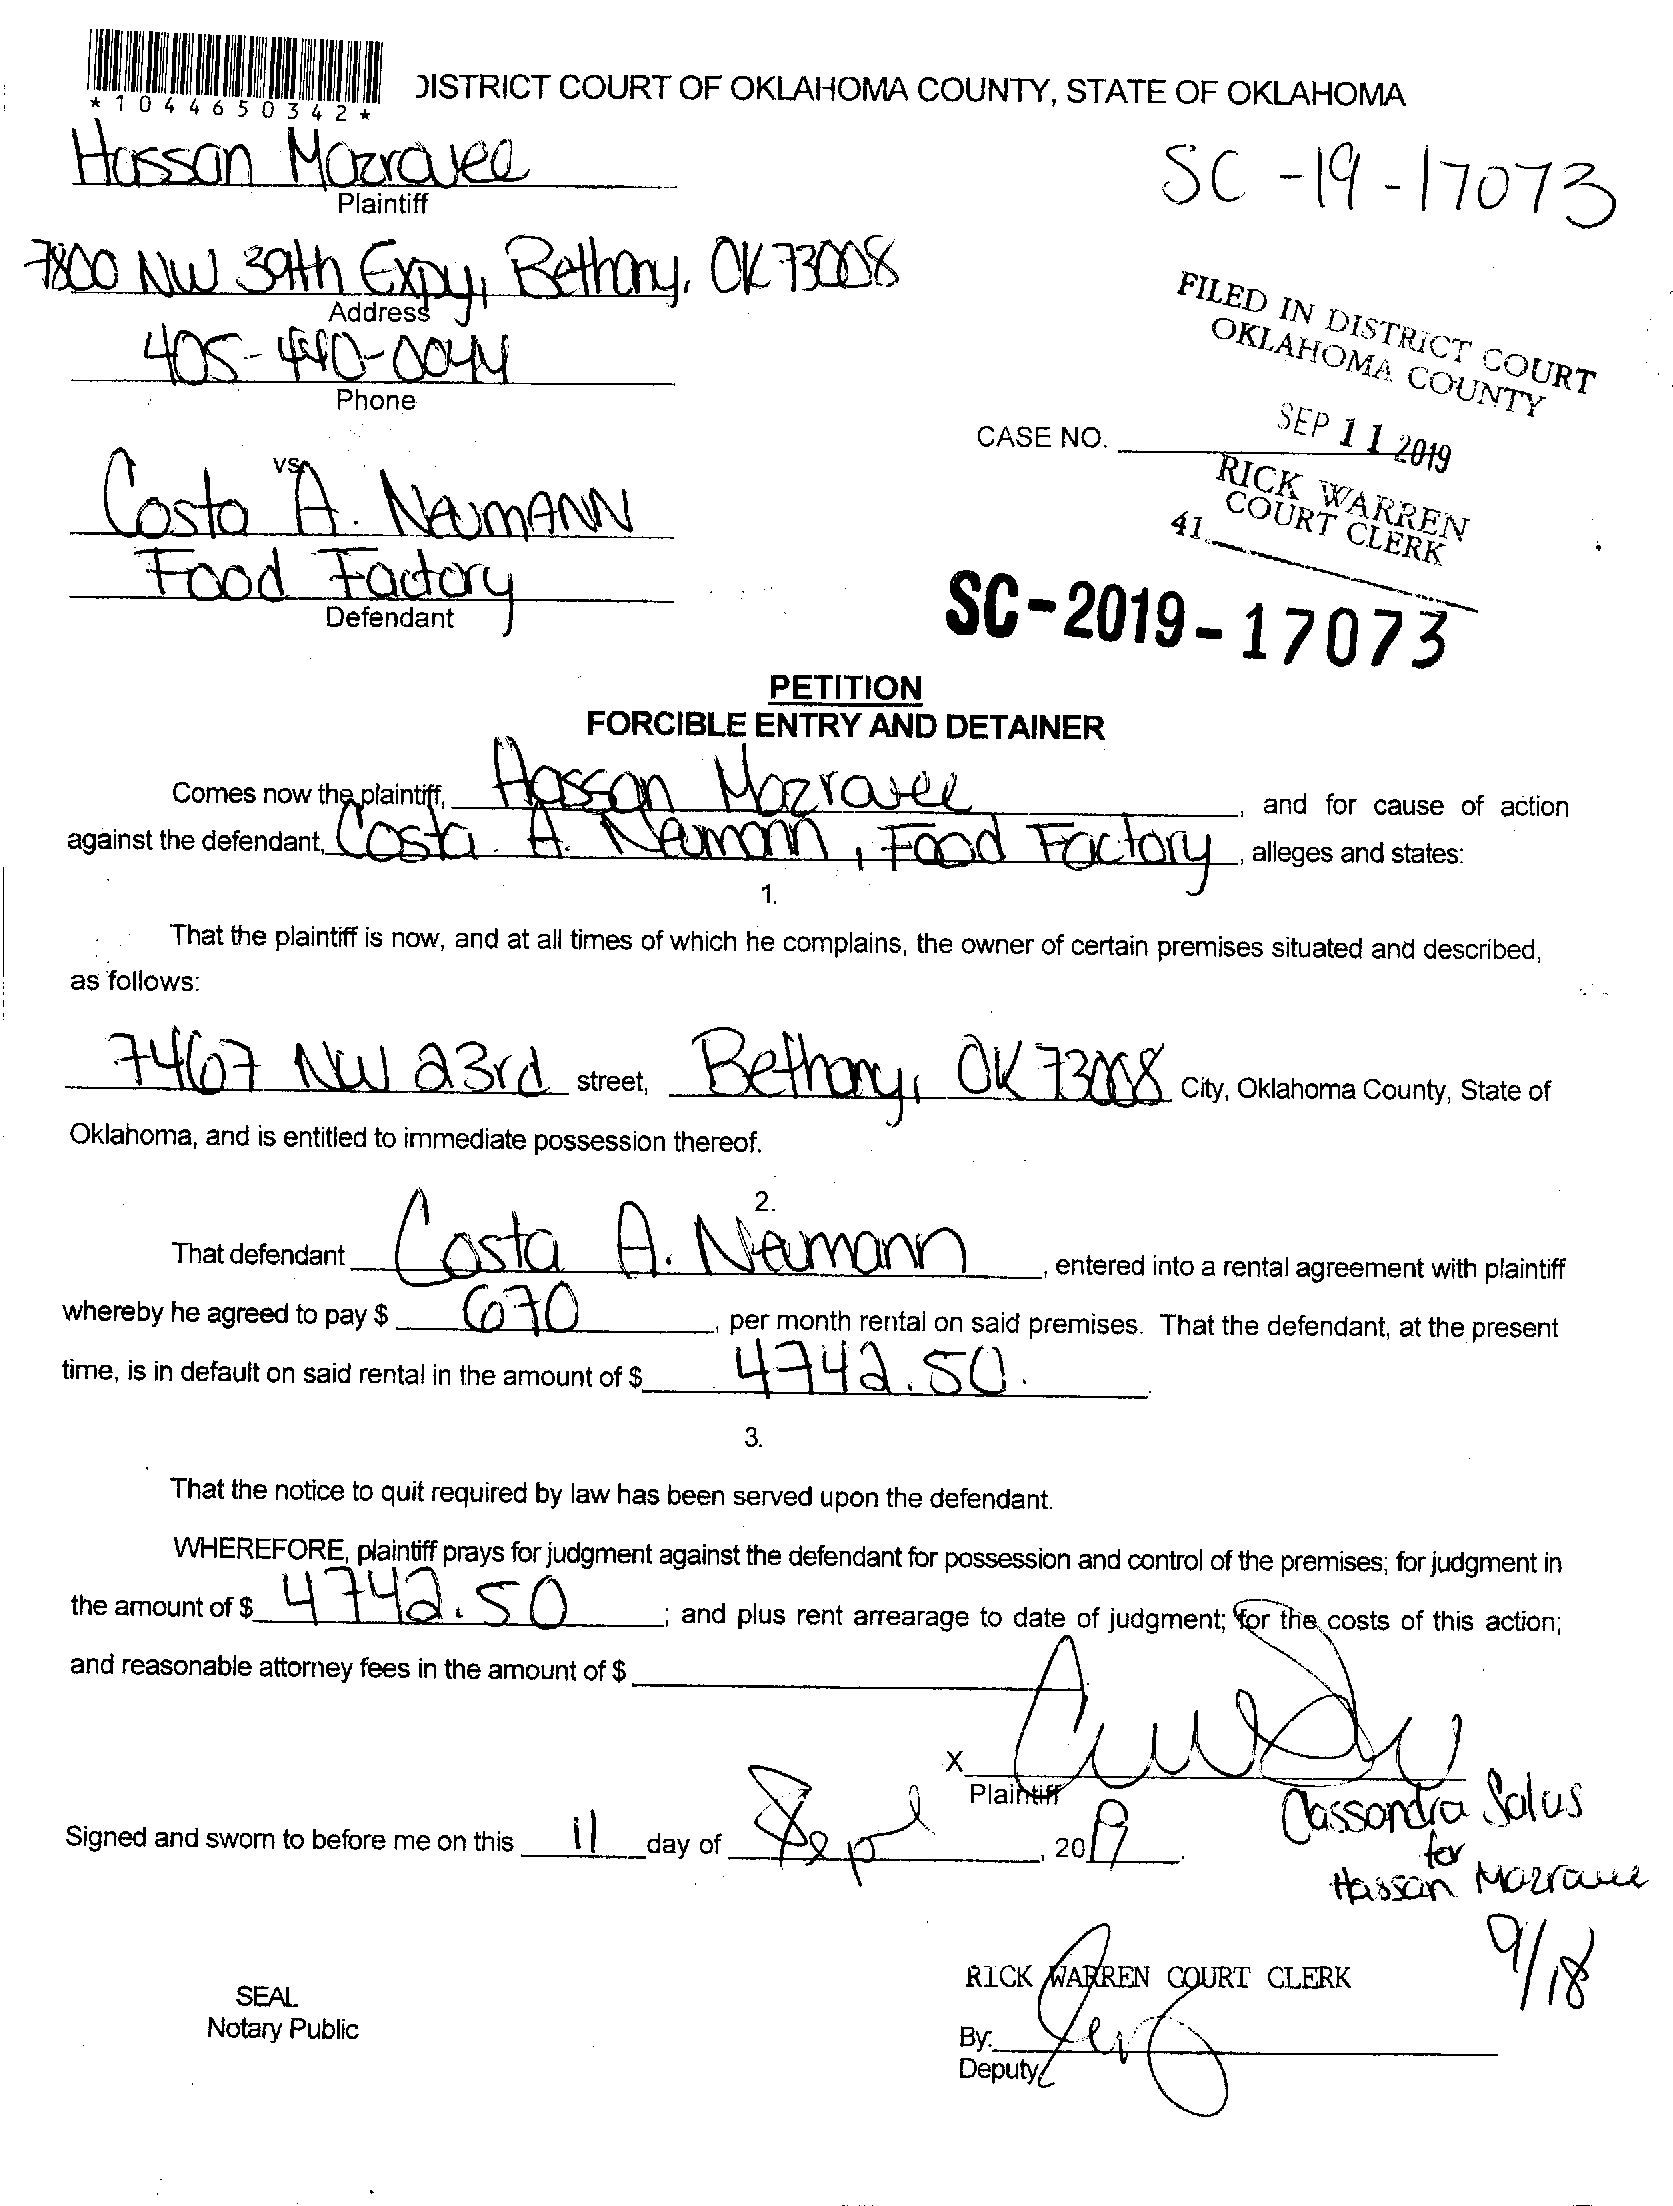 *1044650342*
DISTRICT COURT OF OKLAHOMA COUNTY, STATE OF OKLAHOMA
Hassan Mazravee
Plaintiff
SC-19-17073
7800 NW 39th Expy, Bethany, OK 73008
Address
405-440-0044
Phone
FILED IN DISTRICT COURT
OKLAHOMA COUNTY
SEP 11 2019
RICK WARREN
COURT CLERK
41
CASE NO.
vs
Costa A. NeumANN
Food Factory
Defendant
SC-2019-17073
PETITION
FORCIBLE ENTRY AND DETAINER
Comes now the plaintiff, Hassan Mazravee, and for cause of action
against the defendant, Costa A. Neumann, Food Factory, alleges and states:
1.
That the plaintiff is now, and at all times of which he complains, the owner of certain premises situated and described,
as follows:
7467 NW 23rd street, Bethany, OK 73008 City, Oklahoma County, State of
Oklahoma, and is entitled to immediate possession thereof.
2.
That defendant Costa A. Neumann, entered into a rental agreement with plaintiff
whereby he agreed to pay $ 670, per month rental on said premises. That the defendant, at the present
time, is in default on said rental in the amount of $ 4742.50.
3.
That the notice to quit required by law has been served upon the defendant.
WHEREFORE, plaintiff prays for judgment against the defendant for possession and control of the premises; for judgment in
the amount of $ 4742.50; and plus rent arrearage to date of judgment; for the costs of this action;
and reasonable attorney fees in the amount of $
X
Plaintiff
Cassondra Salus
for
Hassan Mazravee
Signed and sworn to before me on this 11 day of Sept, 2019.
9/18
RICK WARREN COURT CLERK
SEAL
Notary Public
By:
Deputy